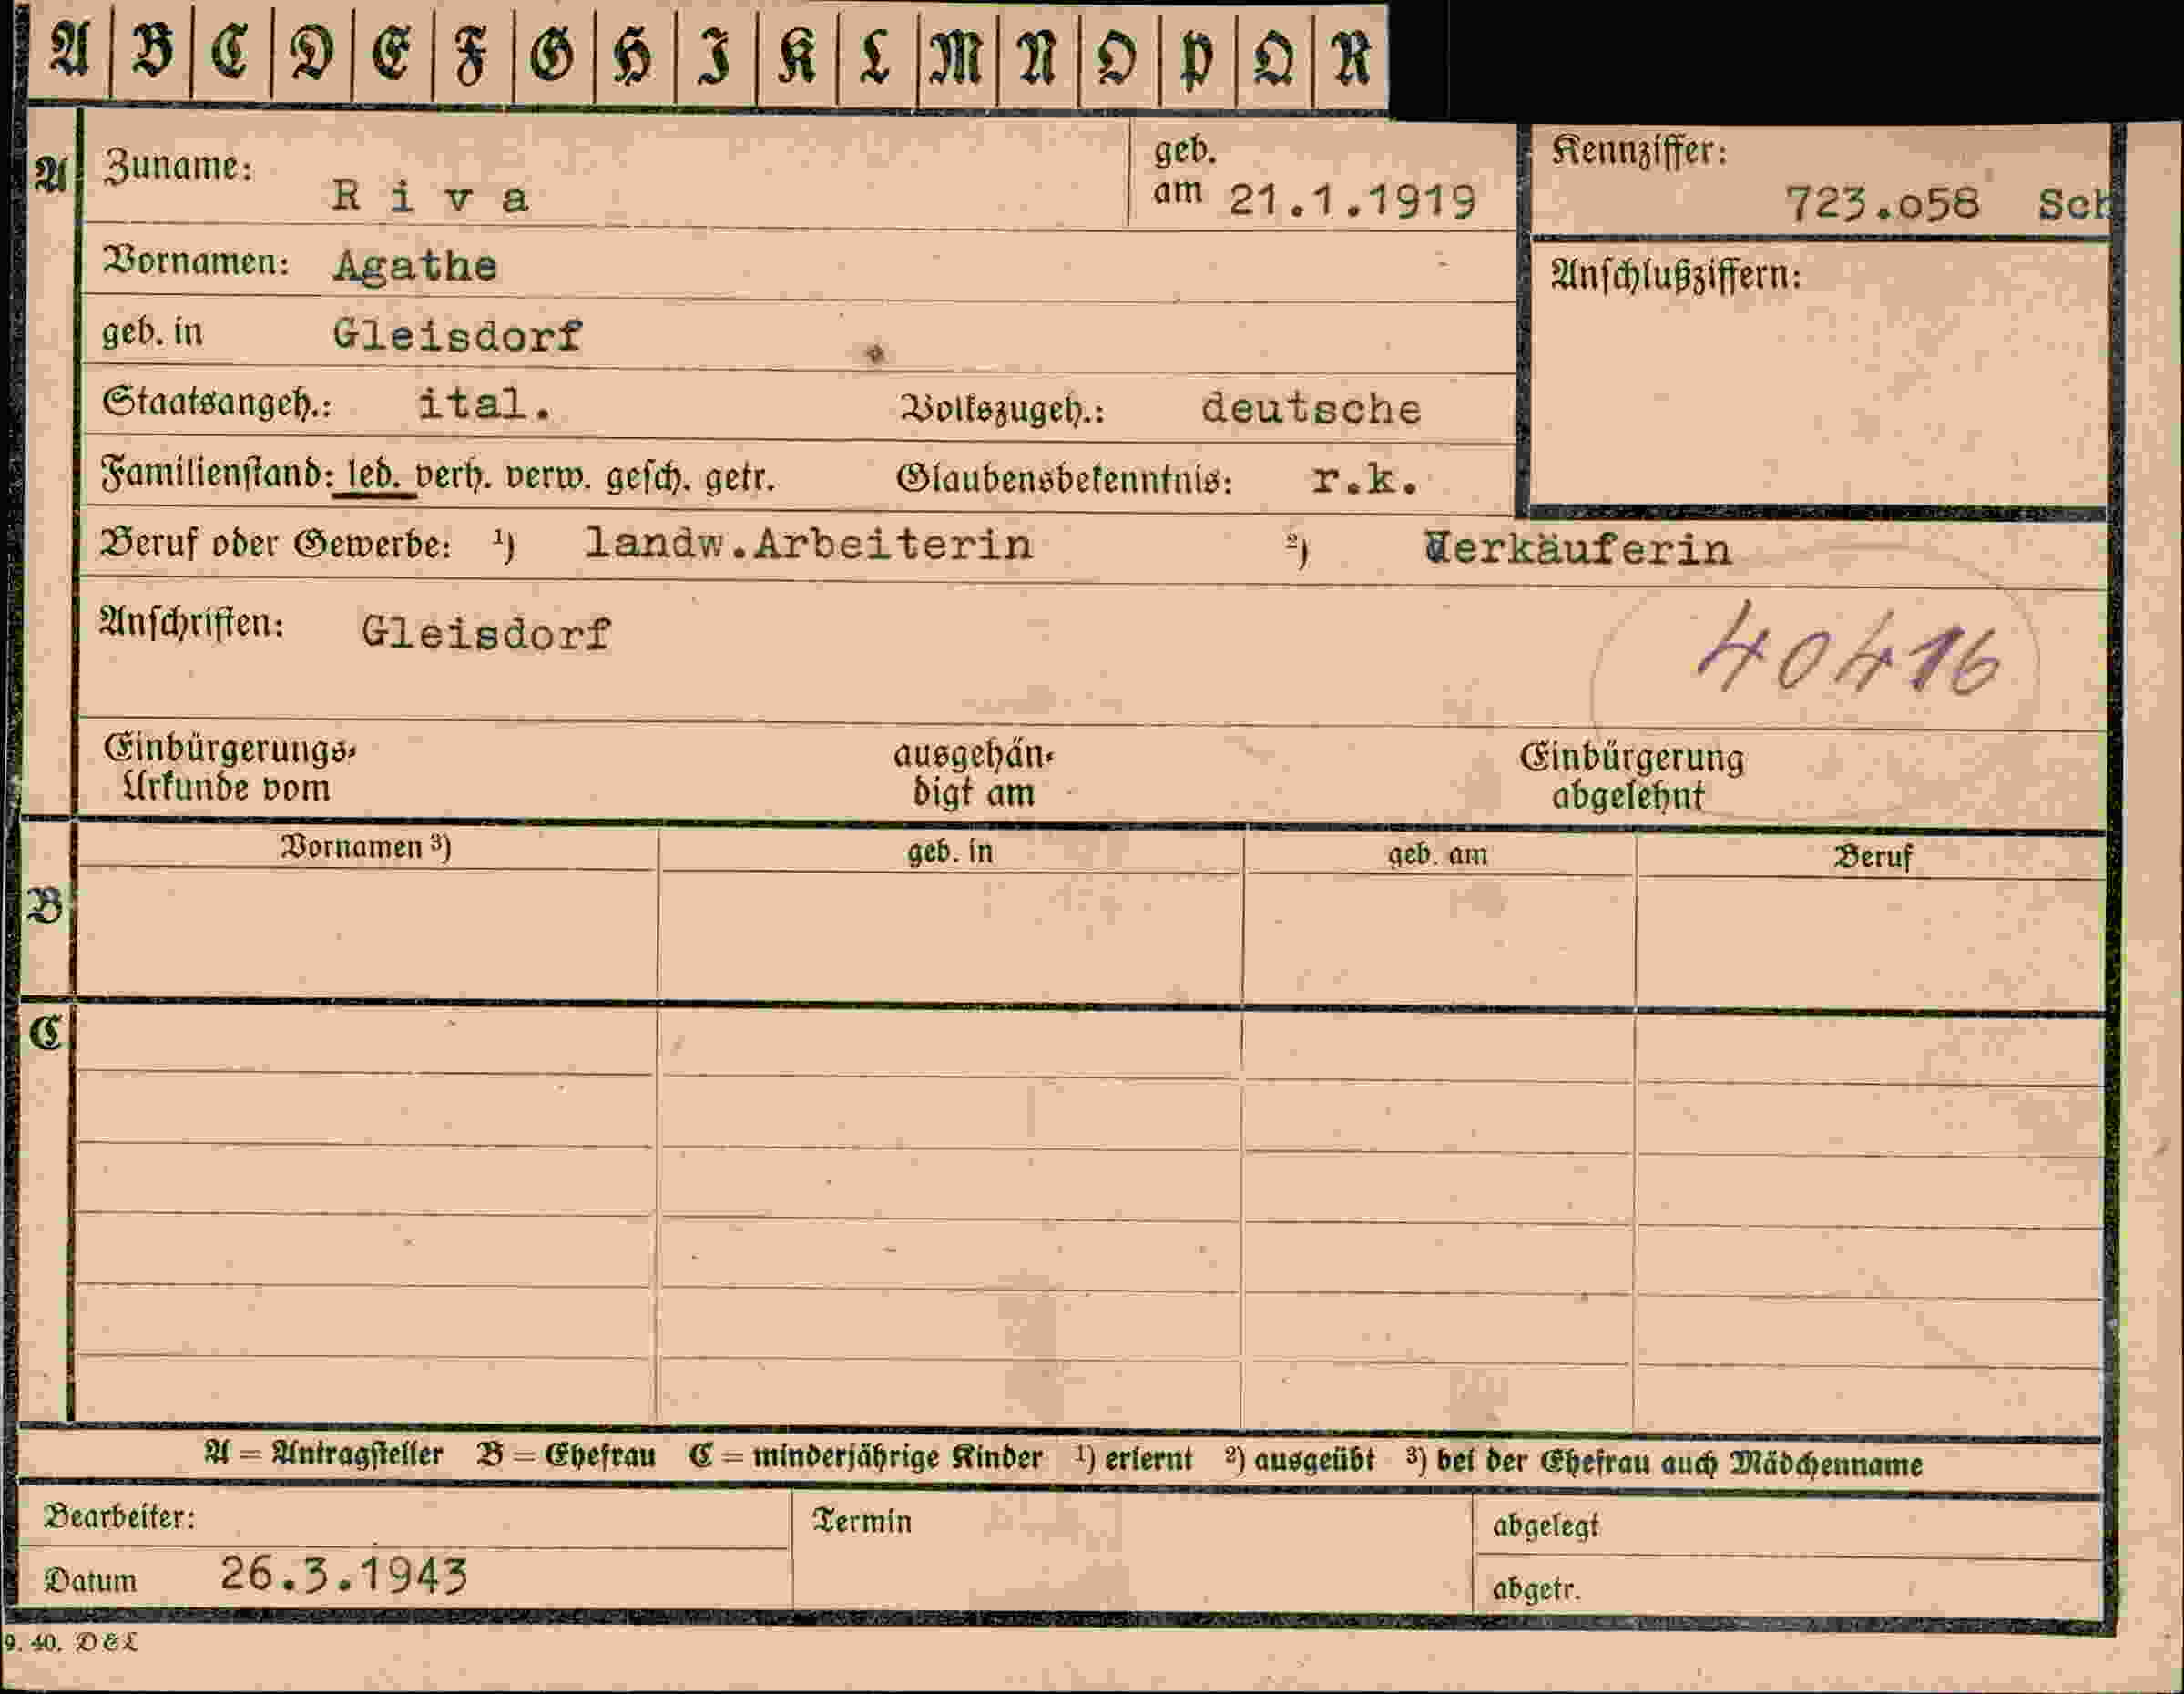 A B C D E F G H I K L M N O P Q R
A Zuname: Riva geb. am 21.1.1919 Kennziffer: 723.o58 Sch
Vornamen: Agathe Anschlußziffern:
geb. in Gleisdorf
Staatsangeh.: ital. Volkszugeh.: deutsche
Familienstand: led. verh. verw. gesch. getr. Glaubensbekenntnis: r.k.
Beruf oder Gewerbe: ¹) landw.Arbeiterin ²) Verkäuferin
Anschriften: Gleisdorf 40416
Einbürgerungs- ausgehän- Einbürgerung
Urkunde vom digt am abgelehnt
Vornamen ³) geb. in geb. am Beruf
B
C
A = Antragsteller B = Ehefrau C = minderjährige Kinder ¹) erlernt ²) ausgeübt ³) bei der Ehefrau auch Mädchenname
Bearbeiter: Termin abgelegt
Datum 26.3.1943 abgetr.
9. 40. D & L